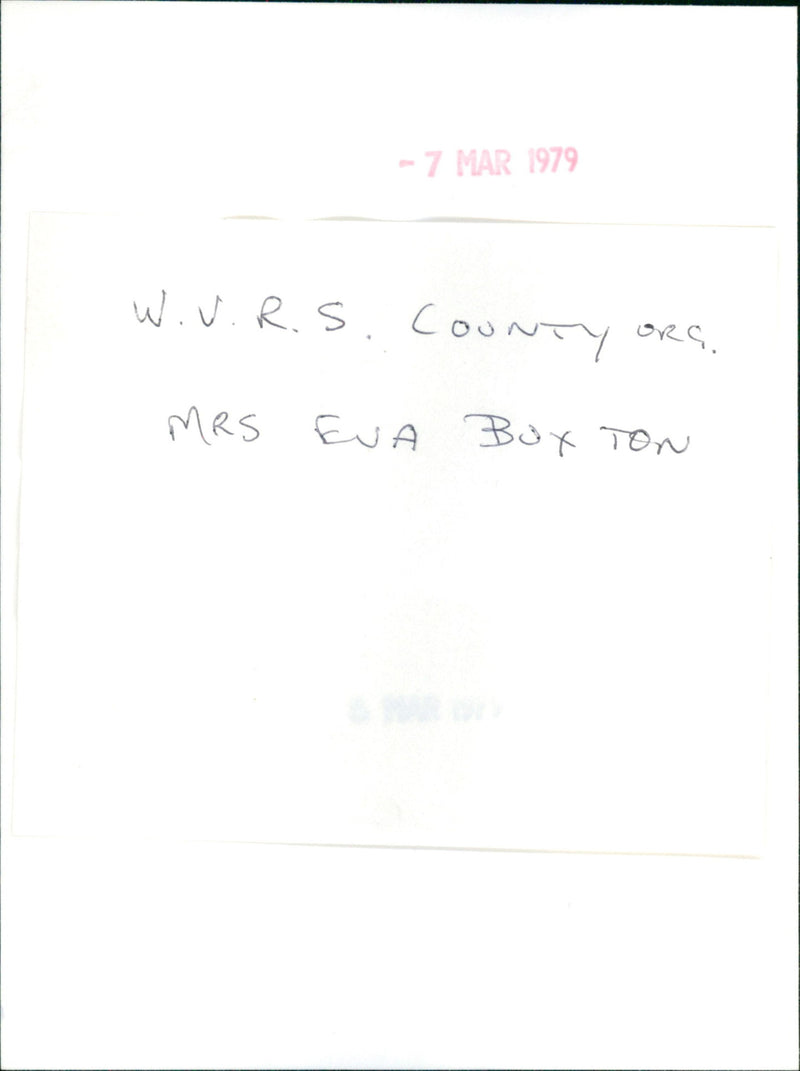 - 7 MAR 1979
W.V.R.S. COUNTY ORG.
MRS EVA BUXTON
MAR